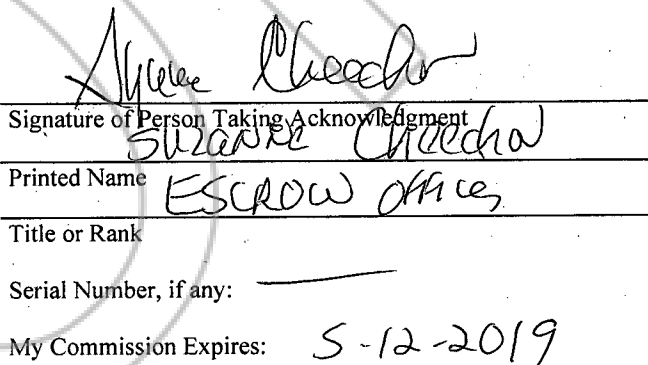 Suzanne Cheechov
Signature of Person Taking Acknowledgment
Suzanne Cheechov
Printed Name
ESCROW Officer
Title or Rank
Serial Number, if any: —
My Commission Expires: 5-12-2019